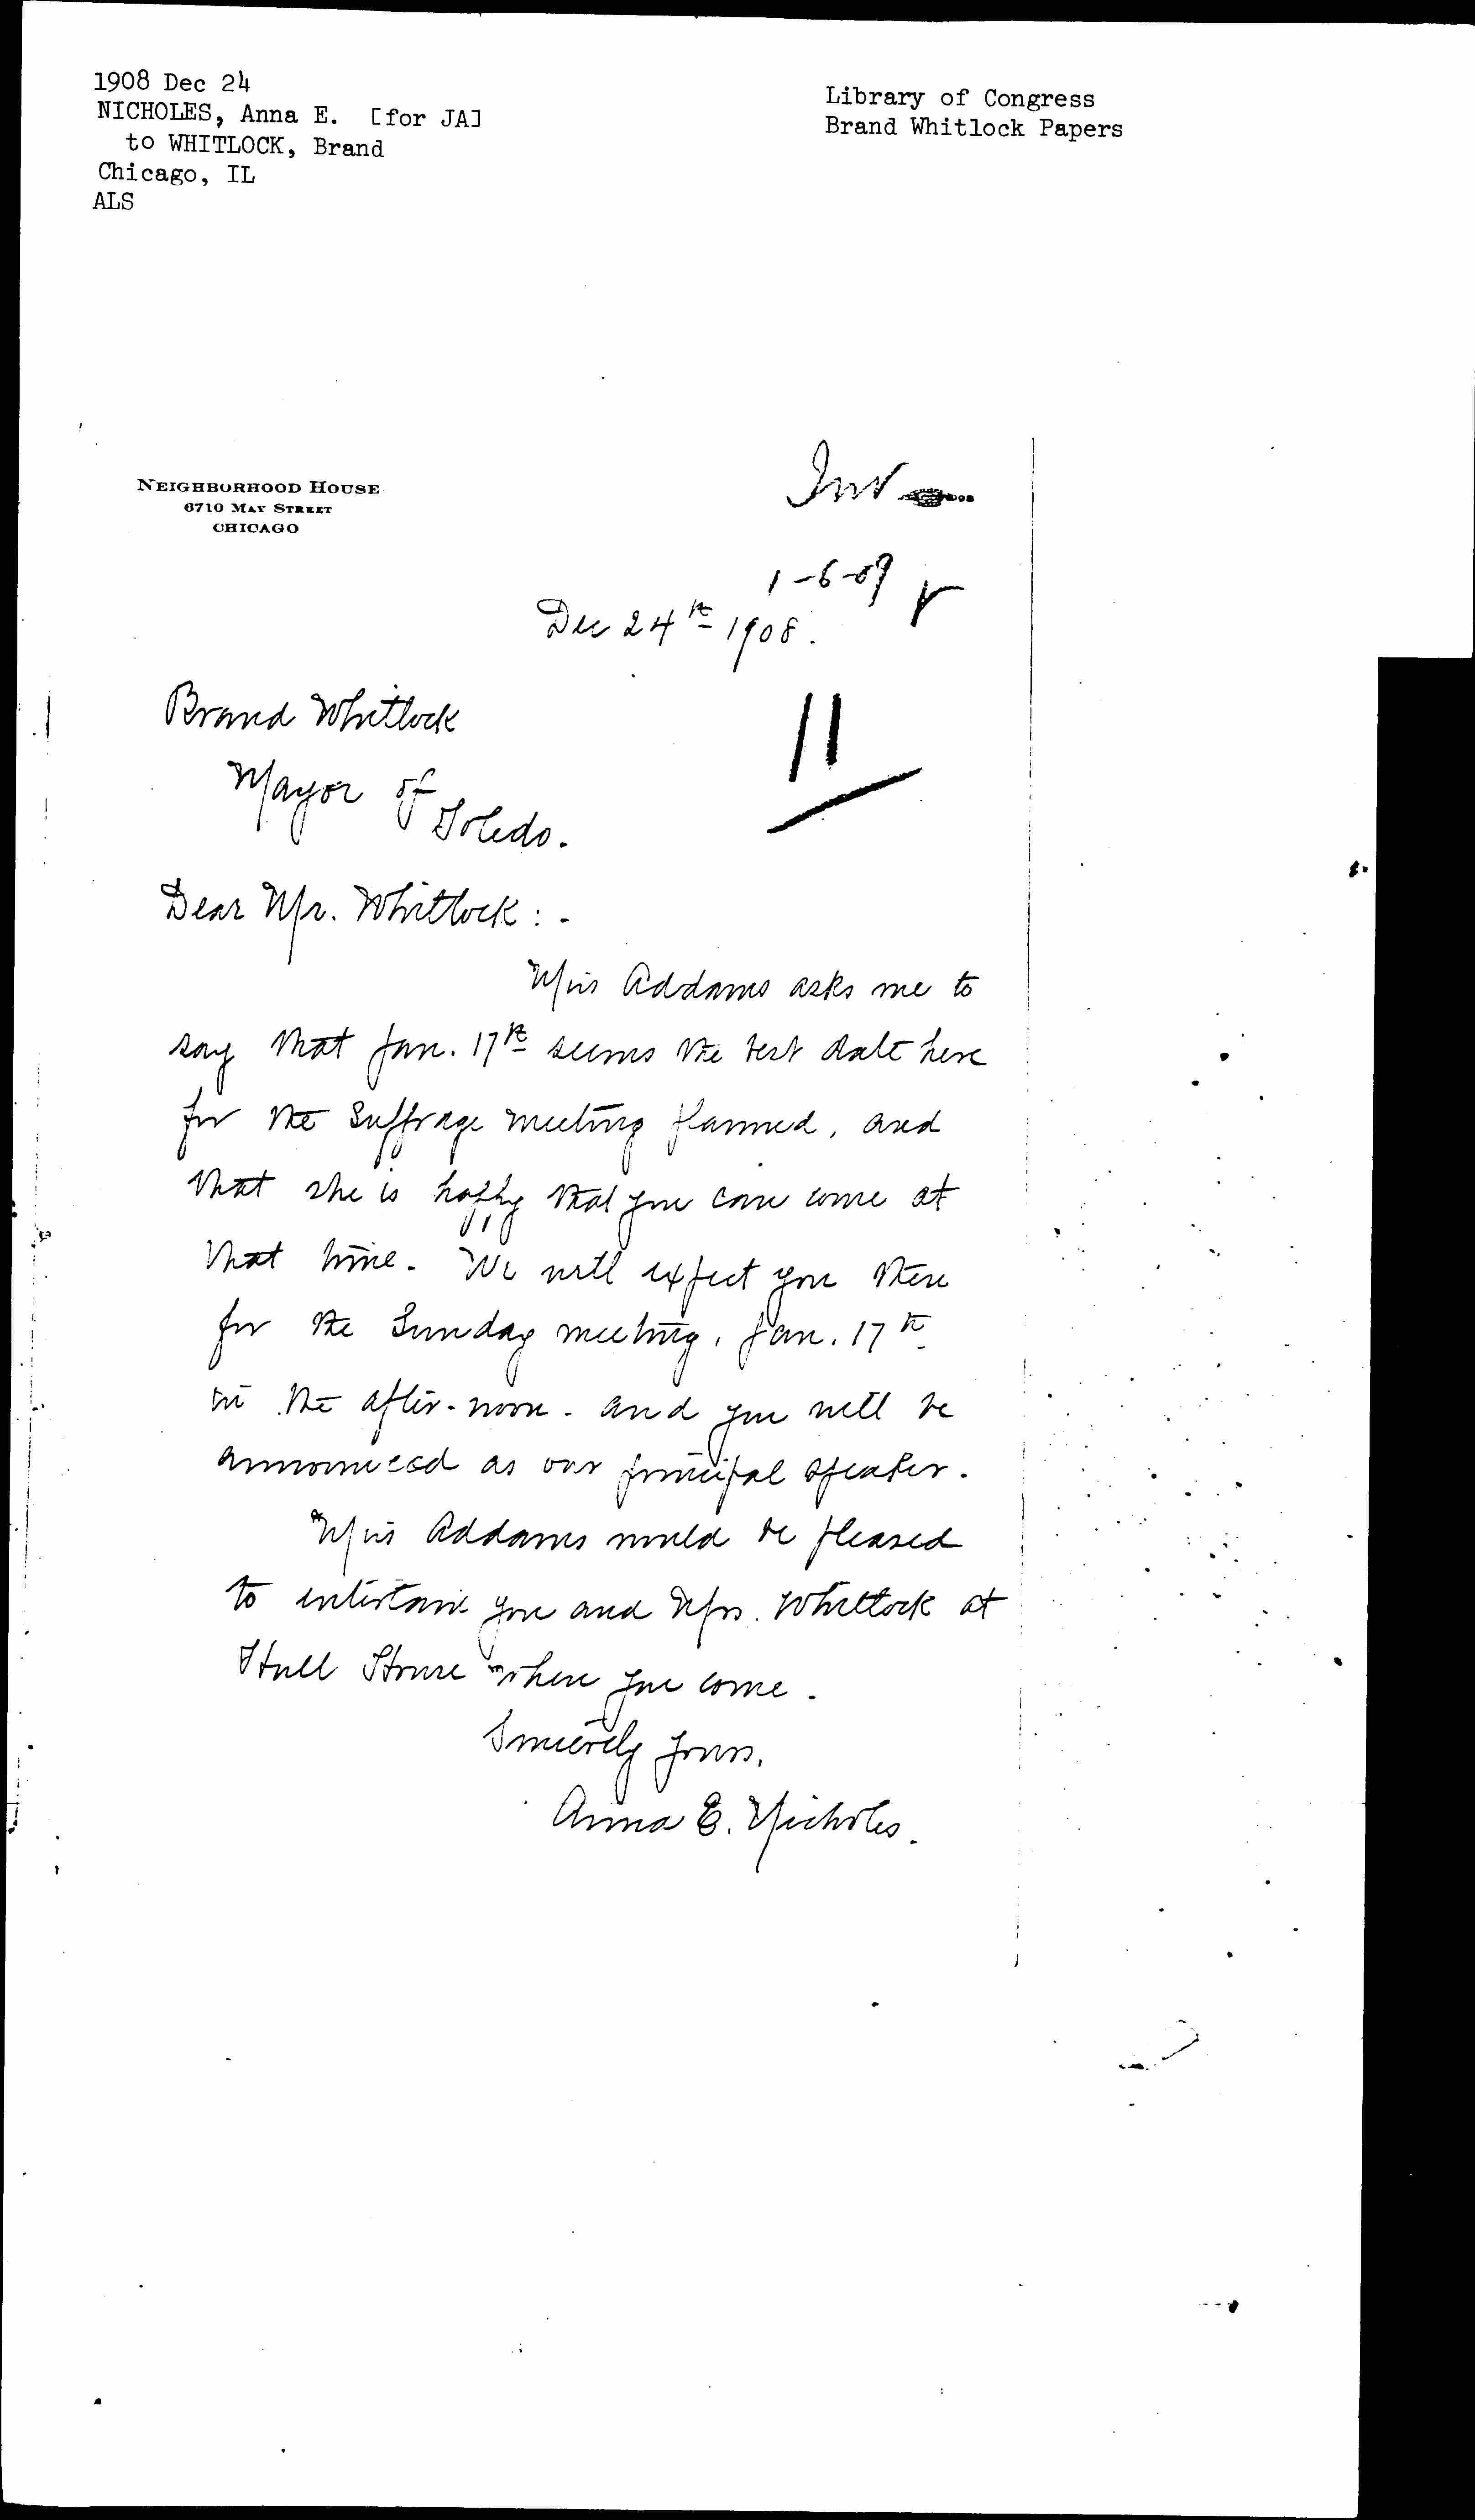 1908 Dec 24
NICHOLES, Anna E. [for JA]
to WHITLOCK, Brand
Chicago, IL
ALS
Library of Congress
Brand Whitlock Papers
NEIGHBORHOOD HOUSE
6710 MAY STREET
CHICAGO
Inv
1-6-09
Dec 24th 1908.
11
Brand Whitlock
Mayor of
Toledo.
Dear Mr. Whitlock:-
Miss Addams asks me to
say that Jan. 17th seems the best date here
for the Suffrage meeting planned, and
that she is happy that you can come at
that time. We will expect you then
for the Sunday meeting, Jan. 17th
in the after-noon - and you will be
announced as our principal speaker.
Miss Addams would be pleased
to entertain you and Mrs. Whitlock at
Hull House when you come.
Sincerely yours,
Anna E. Nicholes.